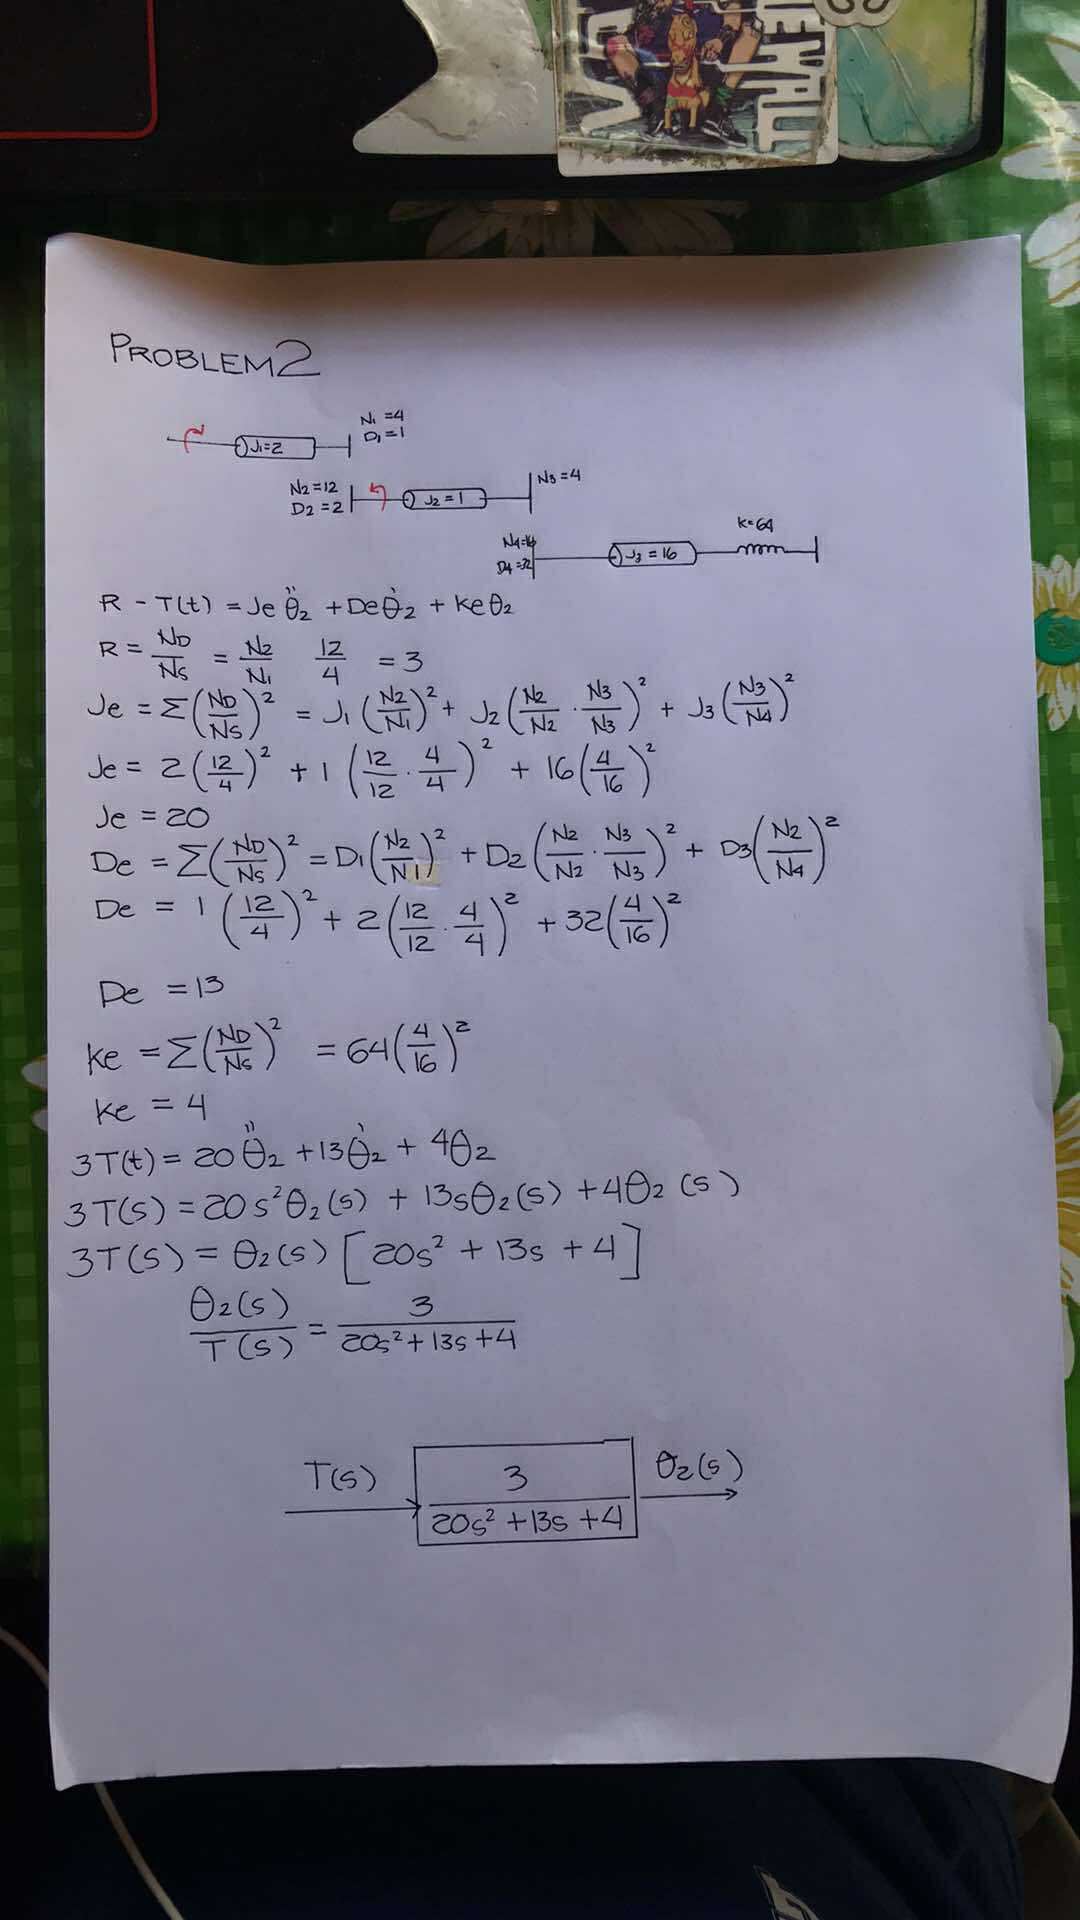 PROBLEM 2
N1 = 4
D1 = 1
J1 = 2
N2 = 12
D2 = 2
J2 = 1
N3 = 4
K = 64
N4 = 16
D4 = 32
J3 = 16
R - T(t) = Je θ̈2 + De θ̇2 + Ke θ2
R = ND/NS = N2/N1 12/4 = 3
Je = Σ(ND/NS)² = J1(N2/N1)² + J2(N2/N2 · N3/N3)² + J3(N3/N4)²
Je = 2(12/4)² + 1(12/12 · 4/4)² + 16(4/16)²
Je = 20
De = Σ(ND/NS)² = D1(N2/N1)² + D2(N2/N2 · N3/N3)² + D3(N2/N4)²
De = 1(12/4)² + 2(12/12 · 4/4)² + 32(4/16)²
De = 13
Ke = Σ(ND/NS)² = 64(4/16)²
Ke = 4
3T(t) = 20θ̈2 + 13θ̇2 + 4θ2
3T(s) = 20s²θ2(s) + 13sθ2(s) + 4θ2(s)
3T(s) = θ2(s)[20s² + 13s + 4]
θ2(s)/T(s) = 3/(20s² + 13s + 4)
T(s)
3/(20s² + 13s + 4)
θ2(s)